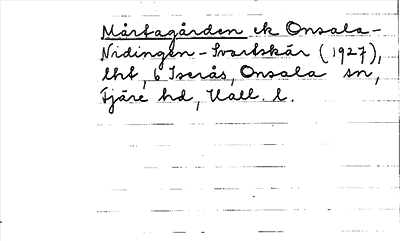 Mårtagården ek Onsala-
Nidingen - Svartskär (1927),
lht, 6 Iserås, Onsala sn,
Fjäre hd, Hall. l.